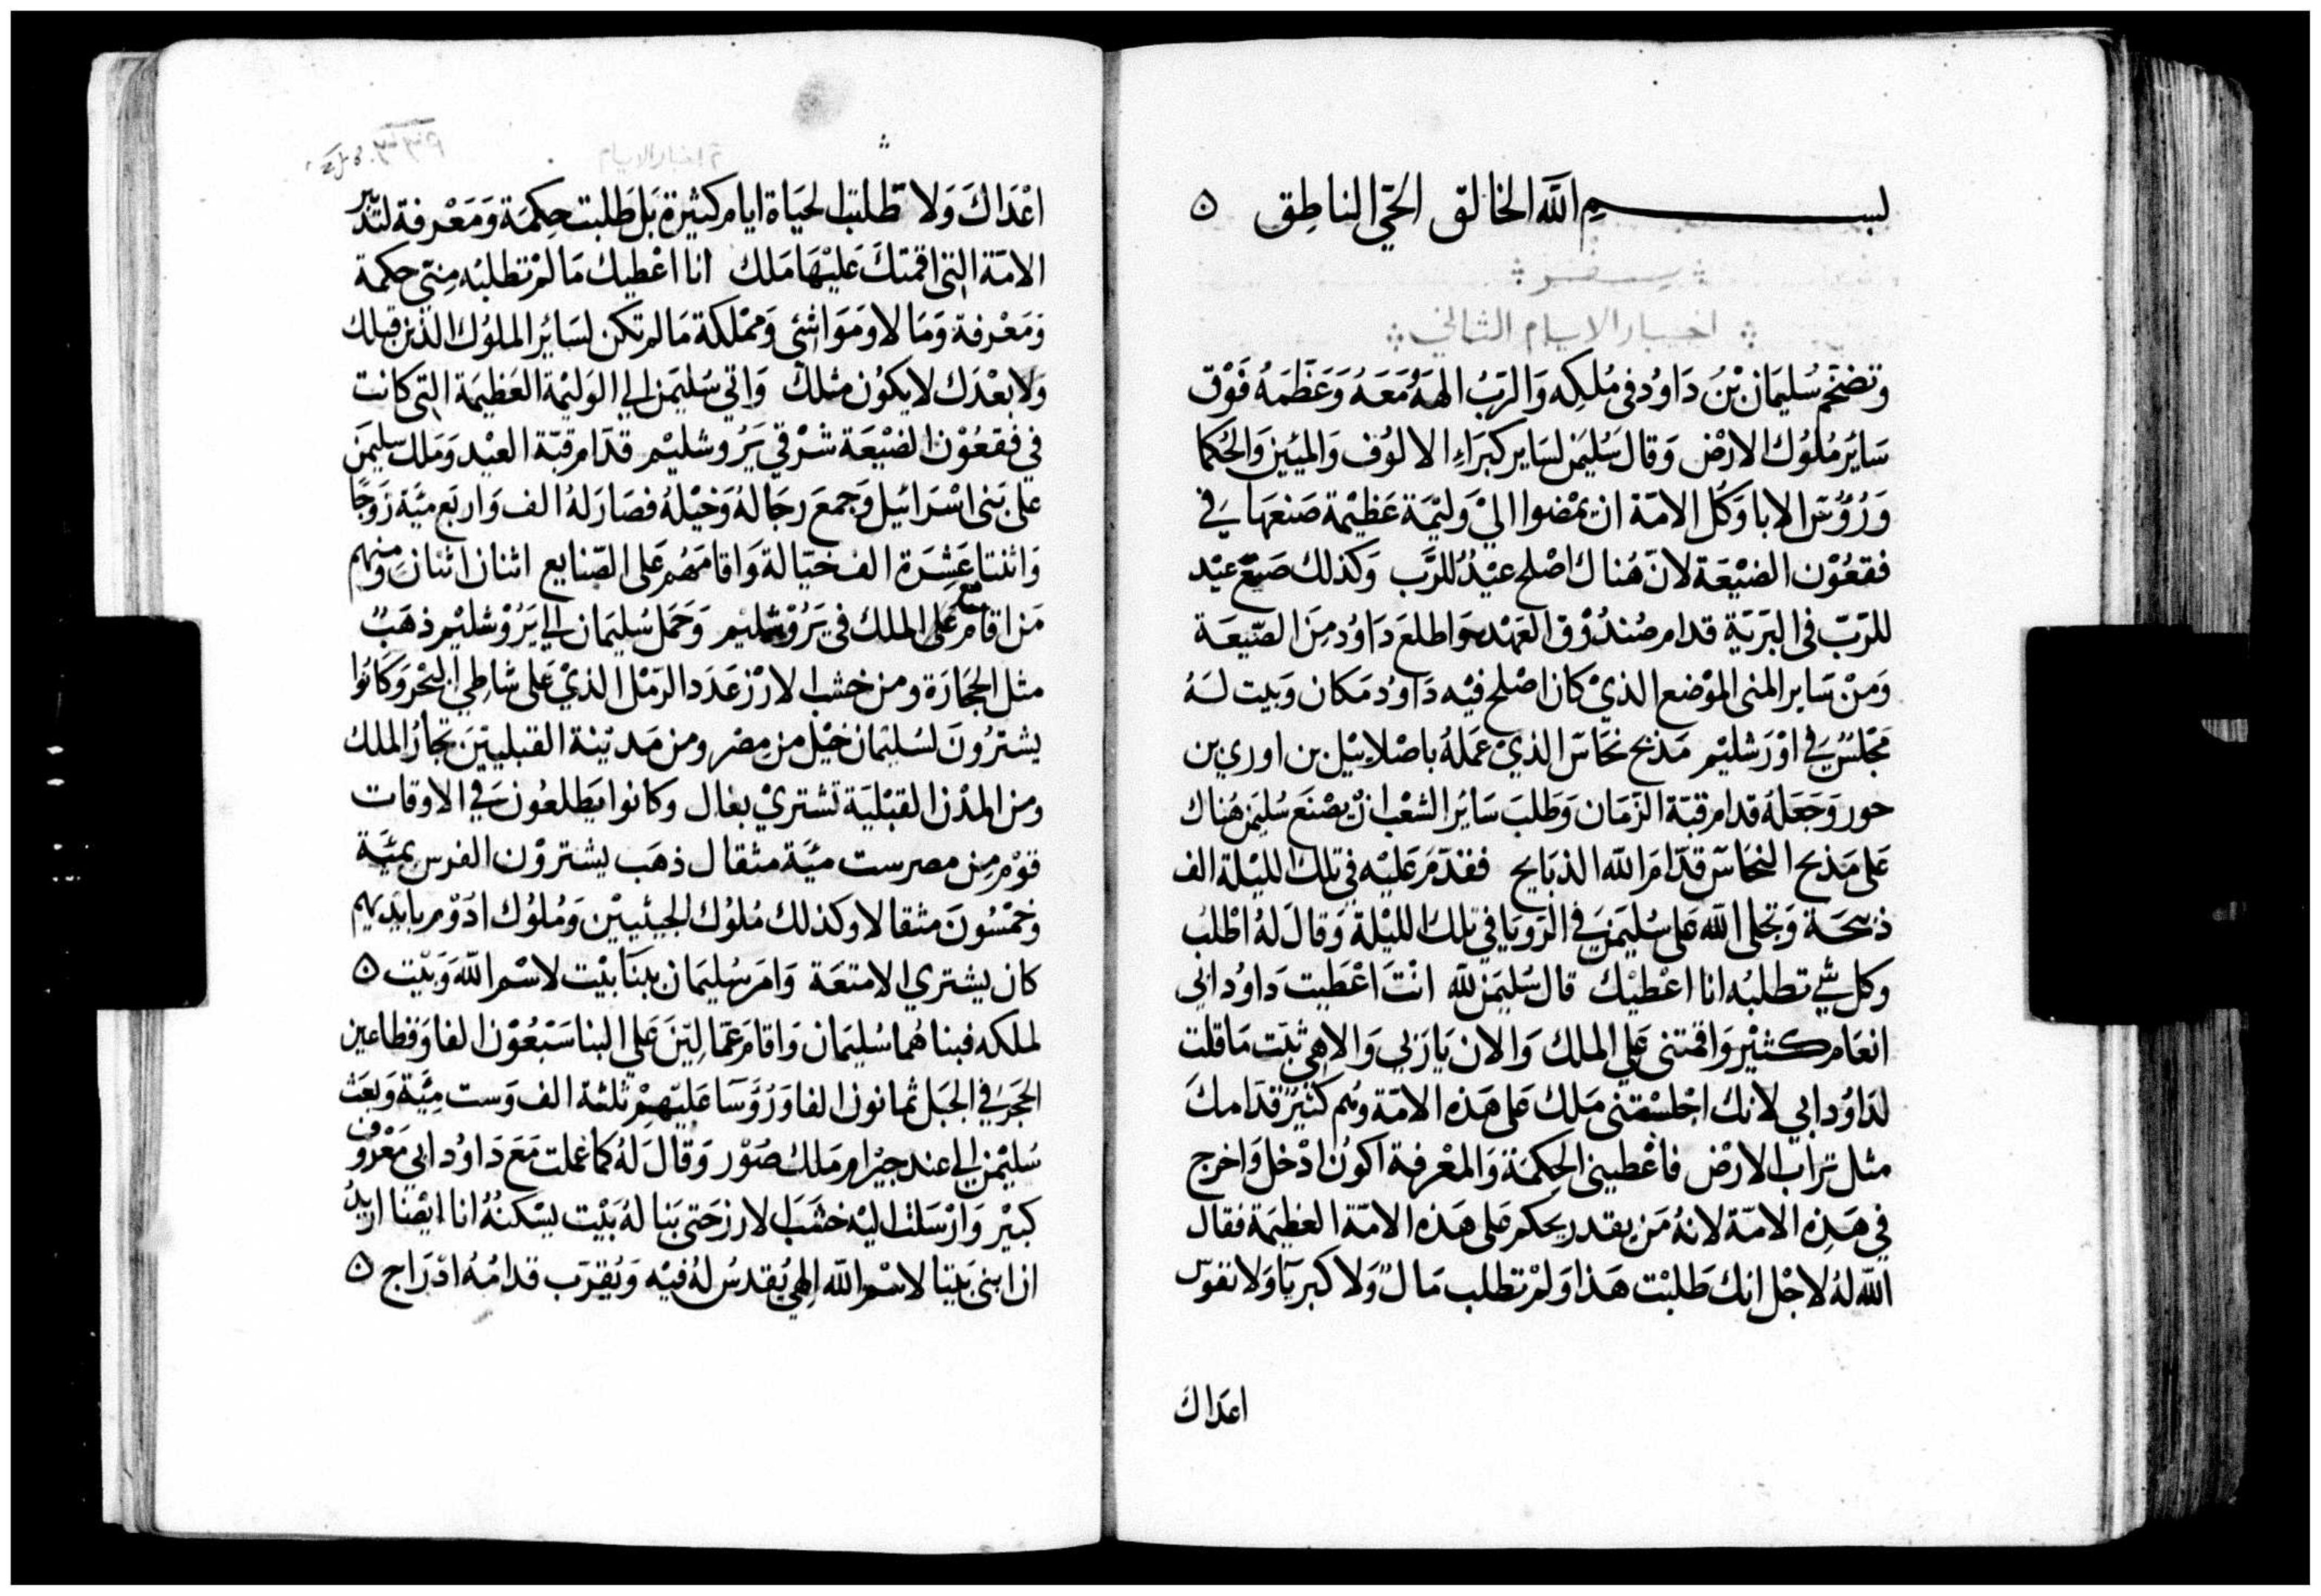 بســـــم الله الخالق الحي الناطق ه
سفر
اخبار الايام الثاني
وتضخم سليمان بن داوود في ملكه والرب الهه معه وعظمه فوق
ساير ملوك الارض وقال سليمن لساير كبراء الالوف والميين والحكما
ورؤوس الابا وكل الامة ان يمضوا الي وليمة عظيمة صنعها في
فقعون الضيعة لان هناك اصلح عيد للرب وكذلك صنع عيد
للرب في البرية قدام صندوق العهد واطلع داود من الضيعة
ومن ساير المني الموضع الذي كان اصلح فيه داود مكان وبيت له
مجلس في اورشليم مذبح نحاس الذي عمله باصلاييل بن اوري بن
حور وجعله قدام قبة الزمان وطلب ساير الشعب ان يصنع سليمن هناك
على مذبح النحاس قدام الله الذبايح فقدم عليه في تلك الليلة الف
ذبيحة وتجلى الله على سليمن في الرويا في تلك الليلة وقال له اطلب
وكل شي تطلبه انا اعطيك قال سليمن لله انت اعطيت داود ابي
انعام كثير واقمتني على الملك والان يا ربي والاهي ثبت ما قلت
لداود ابي لانك اجلستني ملك على هذه الامة وهم كثير قدامك
مثل تراب الارض فاعطيني الحكمة والمعرفة اكون ادخل واخرج
في هذه الامة لانه من يقدر يحكم على هذه الامة العظيمة فقال
الله له لاجل انك طلبت هذا ولم تطلب مال ولا كبريا ولا نفوس
اعداك
اخبار الايام
اعداك ولا طلبت لحياة ايام كثيرة بل طلبت حكمة ومعرفة لتدبر
الامة التي اقمتك عليها ملك انا اعطيك ما لم تطلبه مني حكمة
ومعرفة ومالا ومواشي ومملكة ما لم تكن لساير الملوك الذين قبلك
ولا بعدك لا يكون مثلك واتي سليمن الي الوليمة العظيمة التي كانت
في فقعون الضيعة شرقي يروشليم قدام قبة العيد وملك سليمن
على بني اسرائيل وجمع رجاله وخيله فصار له الف واربع مية زوجا
واثنتا عشرة الف خيالة واقامهم على الصنايع اثنان اثنان ومنهم
من اقام مع على الملك في يروشليم وحمل سليمان الي يروشليم ذهب
مثل الحجارة ومن خشب الارز عدد الرمل الذي على شاطي البحر وكانوا
يشترون لسليمان خيل من مصر ومن مدينة القبليين تجار الملك
ومن المدن القبلية تشتري بغال وكانوا يطلعون في الاوقات
قوم من مصر ست مية مثقال ذهب يشترون الفرس بمية
وخمسون مثقالا وكذلك ملوك الجيثيين وملوك ادوم بايديهم
كان يشتري الامتعة وامر سليمان ببنا بيت لاسم الله وبيت ه
لملكه فبناهما سليمان واقام عمالين على البنا سبعون الفا وقطاعين
الحجر في الجبل ثمانون الفا ورؤسا عليهم ثلثة الف وست مية وبعث
سليمن الي عند جيرام ملك صور وقال له كما عملت مع داود ابي معروف
كبير وارسلت اليه خشب الارز حتى بنا له بيت يسكنه انا ايضا اريد
ان ابني بيتا لاسم الله الهي يقدس له فيه ويقرب قدامه ادراج ه